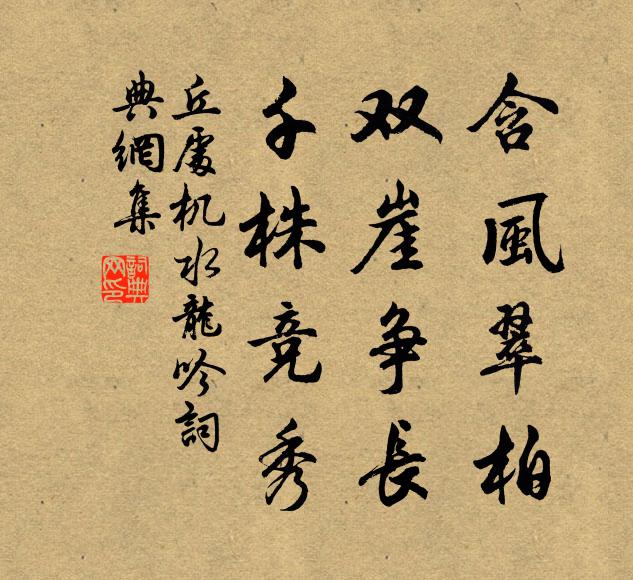 含風翠柏
双崖争長
千株竞秀
丘處机水龍吟詞
典網集
詞典
网印